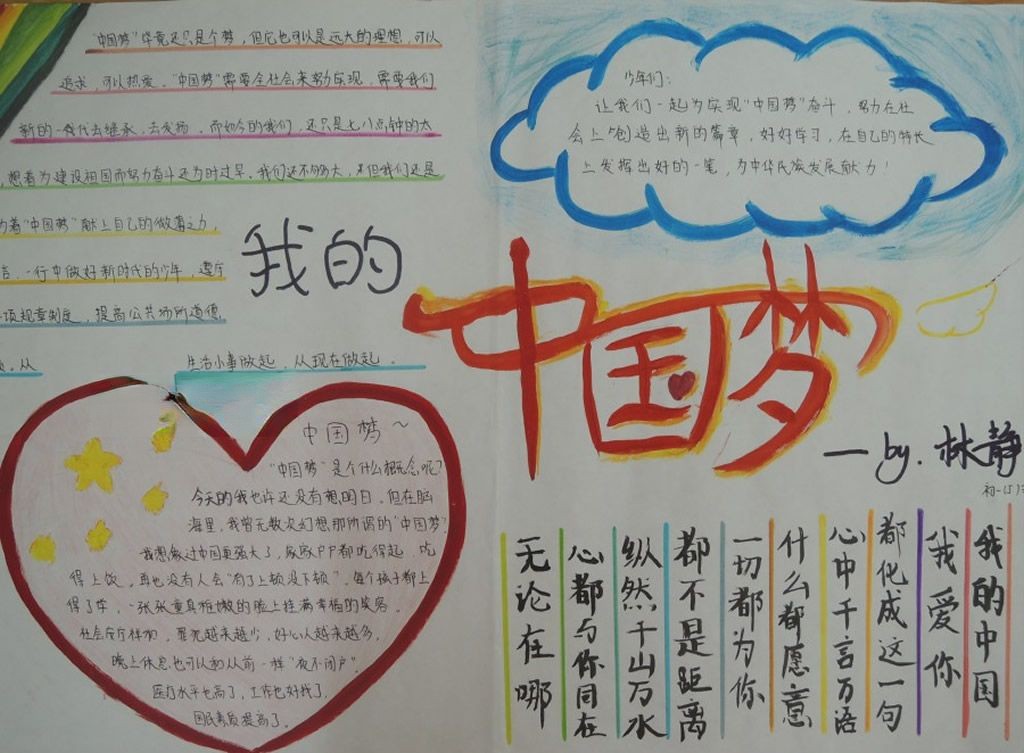 "中国梦"毕竟还只是个梦，但它也可以是远大的理想，可以
追求，可以热爱。"中国梦"需要全社会来努力实现，需要我们
新的一代去继承、去发扬，而如今的我们，还只是七八点钟的太
，想着为建设祖国而努力奋斗还为时过早，我们还不够大，但我们还是
为着"中国梦"献上自己的微薄之力，
言、一行中做好新时代的少年，遵守
项规章制度，提高公共场所道德，
从
生活小事做起，从现在做起。
少年们：
让我们一起为实现"中国梦"奋斗，努力在社
会上创造出新的篇章，好好学习，在自己的特长
上发挥出好的一笔，为中华民族发展献力！
我的
中国梦
—by.林静
初一(5)
中国梦~
"中国梦"是个什么概念呢？
今天的我也许还没有想明白，但在脑
海里，我曾无数次幻想那所谓的"中国梦"
我想做过中国更强大了，家家户户都吃得起，吃
得上饭，再也没有人会"有了上顿没下顿"。每个孩子都上
得了学，一张张童真稚嫩的脸上挂满幸福的笑容。
社会安宁祥和，罪犯越来越少，好心人越来越多，
晚上休息也可以和从前一样"夜不闭户"。
医疗水平也高了，工作也好找了，
国民素质提高了。
我的中国
我爱你
都化成这一句
心中千言万语
什么都愿意
一切都为你
都不是距离
纵然千山万水
心都与你同在
无论在哪